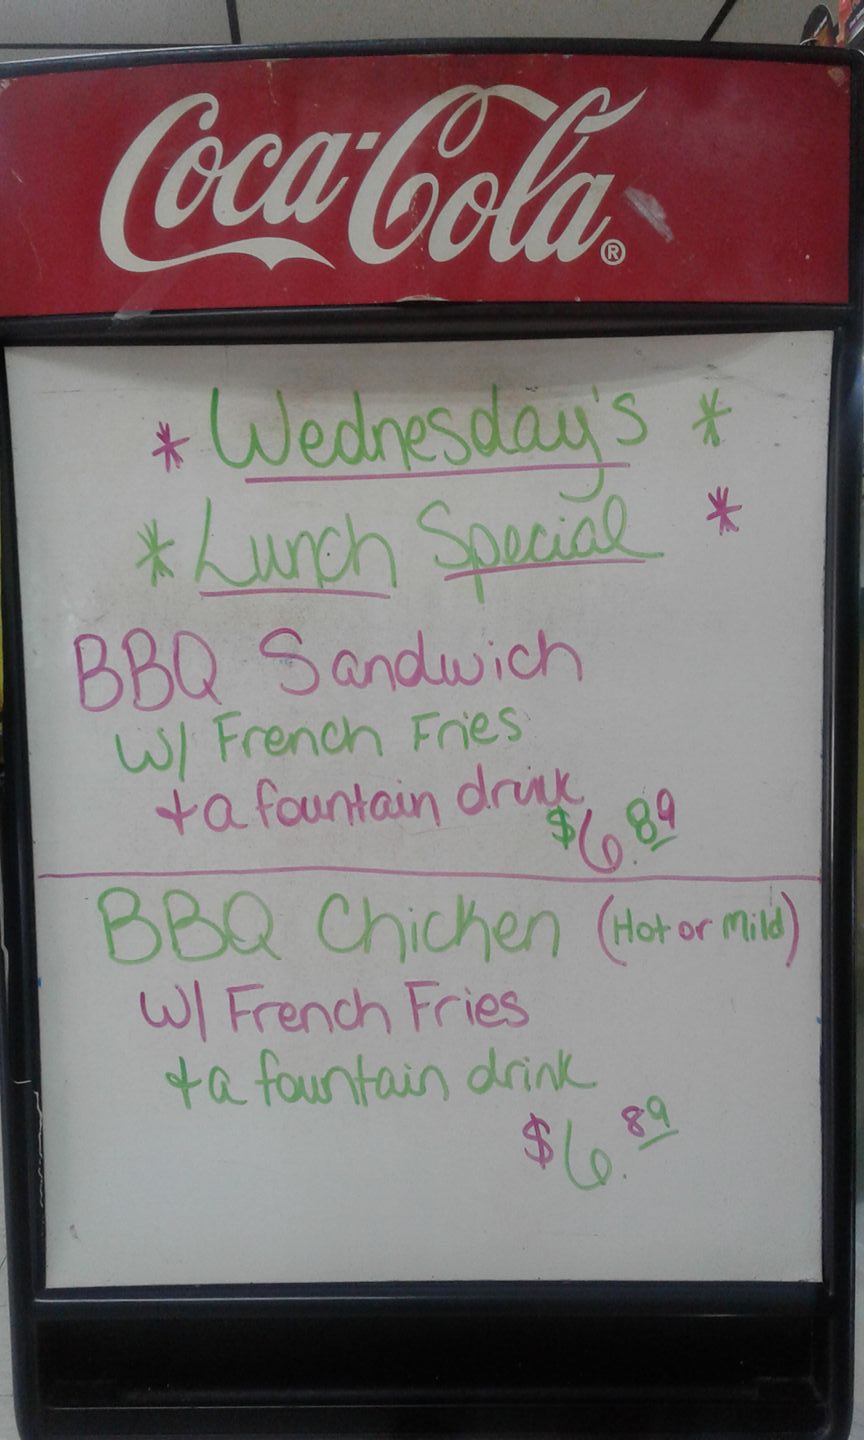 Coca-Cola®
* Wednesday's *
* Lunch Special *
BBQ Sandwich
w/ French Fries
+ a fountain drink
$6.89
BBQ Chicken (Hot or Mild)
w/ French Fries
+ a fountain drink
$6.89